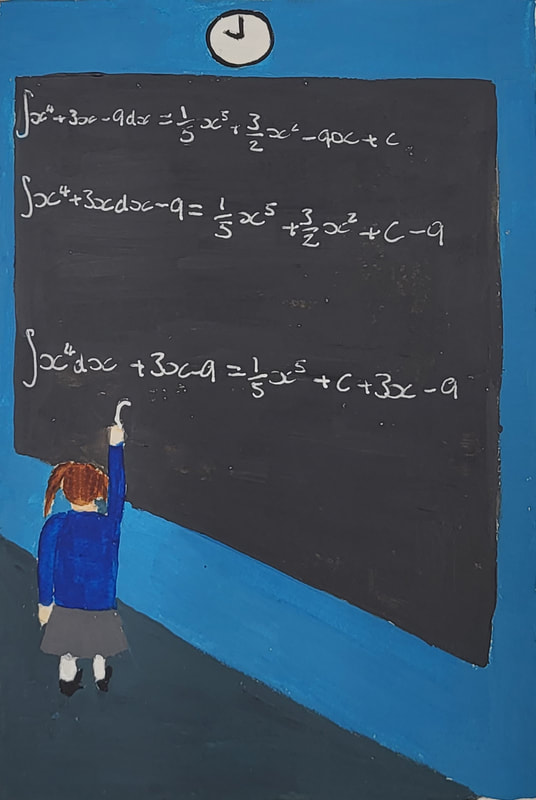 ∫x⁴+3x-9dx = 1/5 x⁵ + 3/2 x² - 9x + c
∫x⁴+3xdx-9 = 1/5 x⁵ + 3/2 x² + c - 9
∫x⁴dx + 3x-9 = 1/5 x⁵ + c + 3x - 9